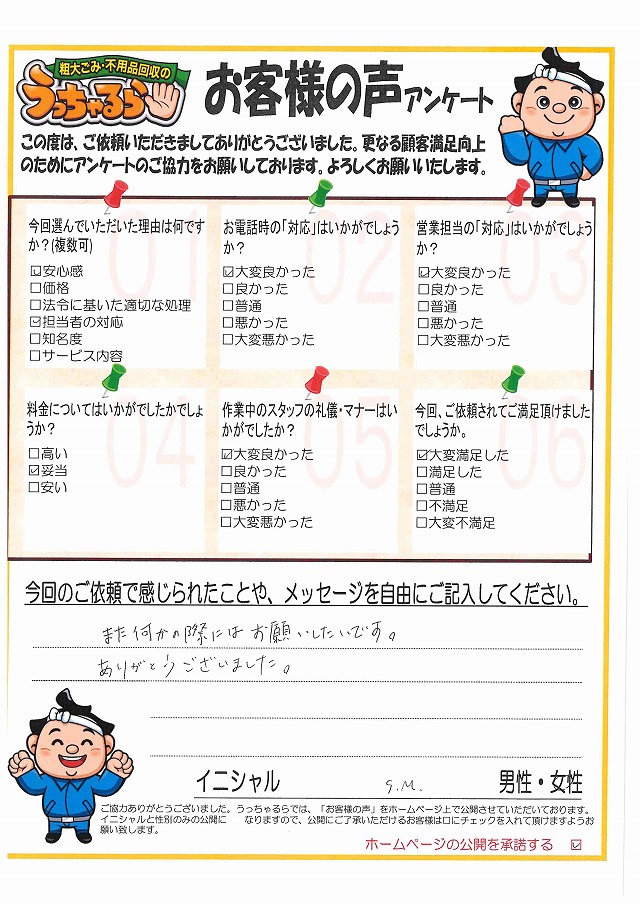 粗大ごみ・不用品回収の
うっちゃるら
お客様の声アンケート
この度は、ご依頼いただきましてありがとうございました。更なる顧客満足向上
のためにアンケートのご協力をお願いしております。よろしくお願いいたします。
01
今回選んでいただいた理由は何です
か?(複数可)
☑安心感
□価格
□法令に基いた適切な処理
☑担当者の対応
□知名度
□サービス内容
02
お電話時の「対応」はいかがでしょう
か?
☑大変良かった
□良かった
□普通
□悪かった
□大変悪かった
03
営業担当の「対応」はいかがでしょう
か?
☑大変良かった
□良かった
□普通
□悪かった
□大変悪かった
04
料金についてはいかがでしたかでしょ
うか?
□高い
☑妥当
□安い
05
作業中のスタッフの礼儀・マナーはい
かがでしたか?
☑大変良かった
□良かった
□普通
□悪かった
□大変悪かった
06
今回、ご依頼されてご満足頂けました
でしょうか。
☑大変満足した
□満足した
□普通
□不満足
□大変不満足
今回のご依頼で感じられたことや、メッセージを自由にご記入してください。
また何かの際にはお願いしたいです。
ありがとうございました。
イニシャル S.M. 男性・女性
ご協力ありがとうございました。うっちゃるらでは、「お客様の声」をホームページ上で公開させていただいております。
イニシャルと性別のみの公開に なりますので、公開にご了承いただけるお客様は口にチェックを入れて頂けますようお
願い致します。
ホームページの公開を承諾する ☑